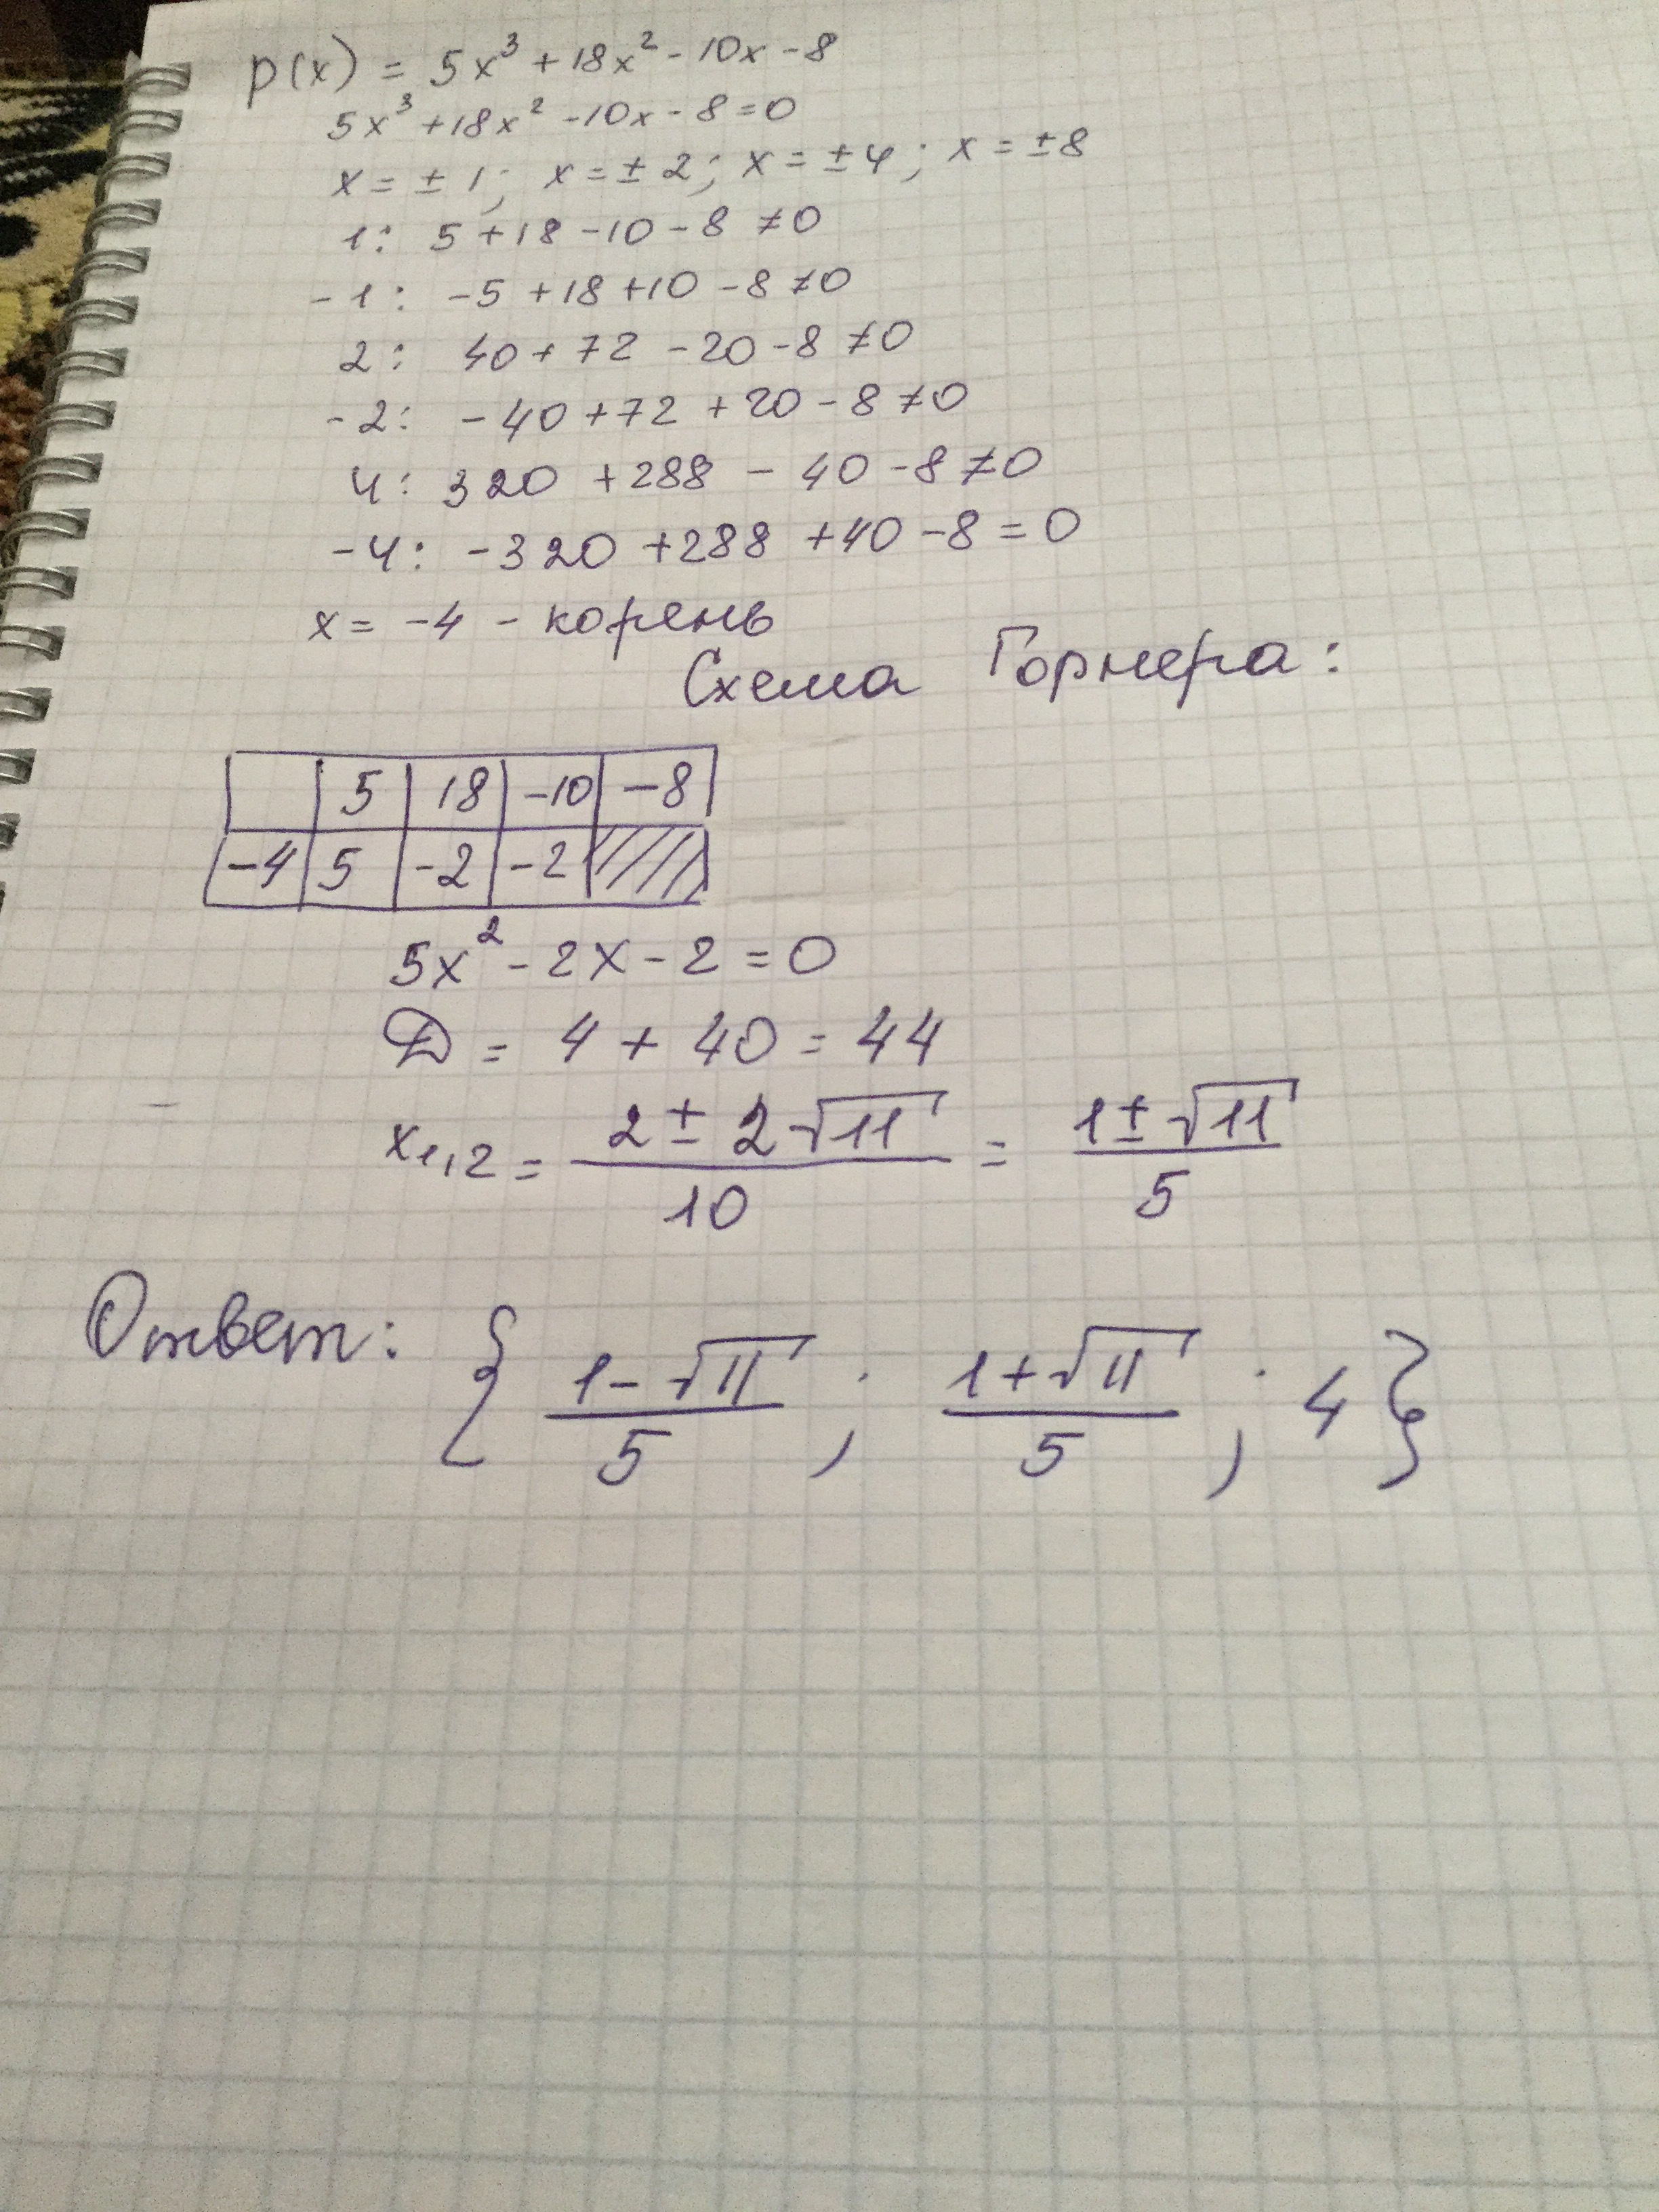 p(x) = 5x³ + 18x² - 10x - 8
5x³ + 18x² - 10x - 8 = 0
x = ± 1; x = ± 2; x = ± 4; x = ± 8
1: 5 + 18 - 10 - 8 ≠ 0
-1: -5 + 18 + 10 - 8 ≠ 0
2: 40 + 72 - 20 - 8 ≠ 0
-2: -40 + 72 + 20 - 8 ≠ 0
4: 320 + 288 - 40 - 8 ≠ 0
-4: -320 + 288 + 40 - 8 = 0
x = -4 - корень
Схема Горнера:
5 18 -10 -8
-4 5 -2 -2
5x² - 2x - 2 = 0
D = 4 + 40 = 44
x₁,₂ = (2 ± 2√11)/10 = (1 ± √11)/5
Ответ: { (1 - √11)/5 ; (1 + √11)/5 ; 4 }